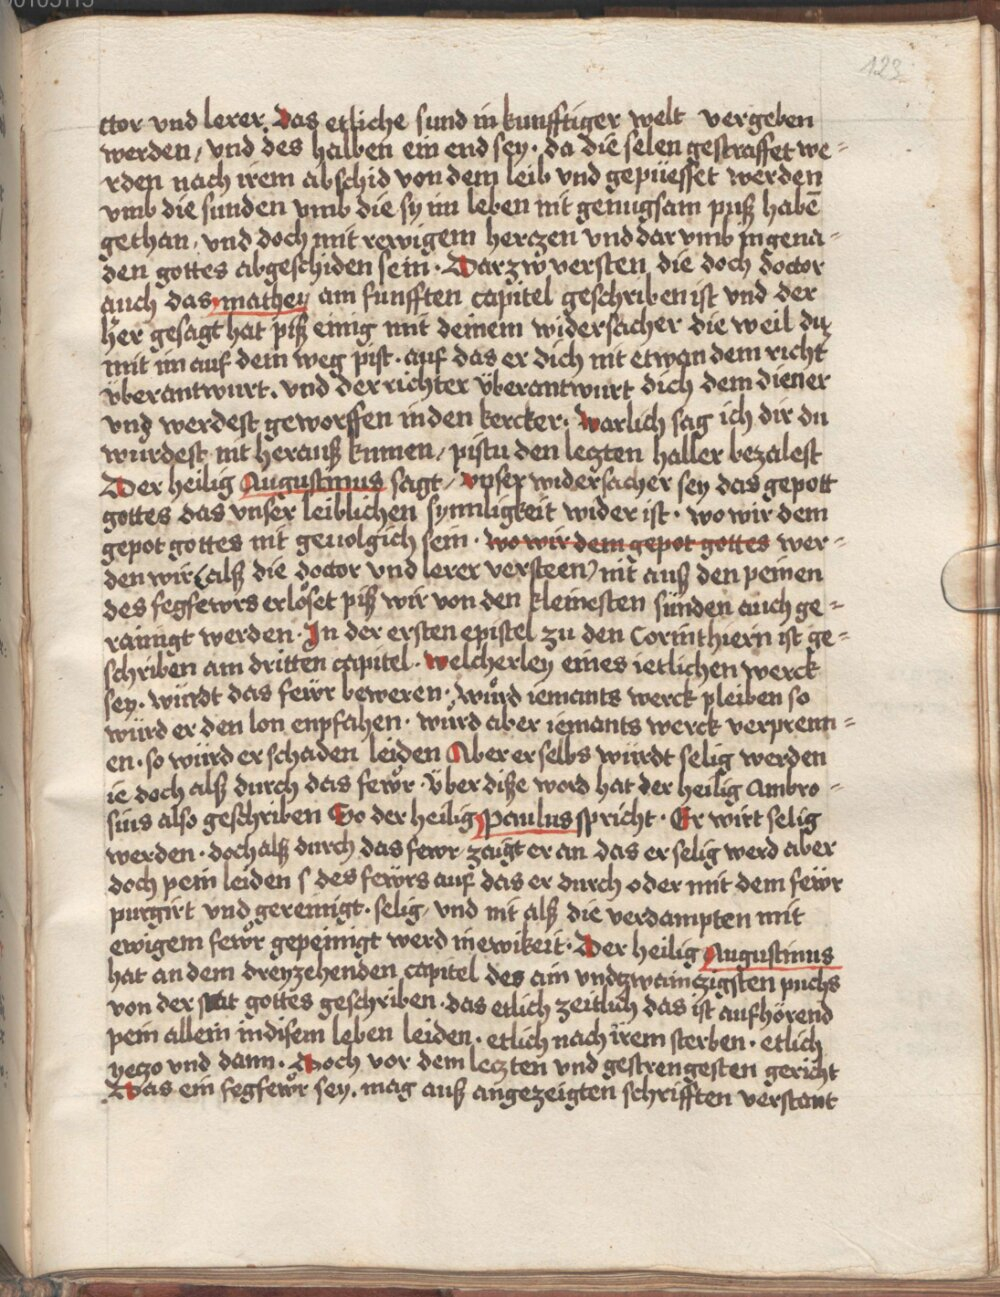 00103113
123
ctor vnd lerer. Das etliche sund in kunfftiger welt vergeben
werden, vnd des halben ein end sey. da die selen gestraffet we=
rden nach irem abschid von dem leib vnd gepüesset werden
vmb die sunden vmb die sy im leben nit genugsam puß habē
gethan, vnd doch mit rewigem herczen vnd dar vmb in gena=
den gottes abgeschiden sein. Darzw versten die doch doctor
auch das mathey am funfften capitel geschriben ist vnd der
her gesagt hat piß einig mit deinem widersacher die weil du
mit im auf dein weg pist. auf das er dich nit etwan dem richt
überantwurt. vnd der richter überantwurt dich dem diener
vnd werdest geworffen in den kercker. warlich sag ich dir du
wurdest nit herauß kumen, pistu den leczten haller bezalest
Der heilig Augustinus sagt, vnser widersacher sey das gepott
gottes das vnser leiblichen synnligkeit wider ist. wo wir dem
gepot gottes nit geuolgich sein. wo wir dem gepot gottes wer=
den wir (alß die doctor vnd lerer versteen) nit auß den peinen
des fegfewrs erlöset piß wir von den kleinesten sünden auch ge=
rainigt werden. In der ersten epistel zu den Corinthiern ist ge=
schriben am dritten capitel. welcherley eines ietlichen werck
sey. würdt das fewr beweren. würd iemants werck pleiben so
würd er den lon enpfahen. würd aber iemants werck verprenn=
en. so würd er schaden leiden Aber er selbs würdt selig werden
ie doch alß durch das fewr. über diße word hat der heilig Ambro=
sius also geschriben So der heilig Paulus spricht. Er wirt selig
werden. doch alß durch das fewr zaigt er an das er selig werd aber
doch pein leiden s des fewrs auf das er durch oder mit dem fewr
purgirt vnd gereinigt. selig, vnd nit alß die verdampten mit
ewigem fewr gepeinigt werd in ewikeit. Der heilig Augustinus
hat an dem dreyzehenden capitel des ain vndzwainczigsten puchs
von der stat gottes geschriben. das etlich zeitlich das ist aufhörend
pein allein in disem leben leiden. etlich nach irem sterben. etlich
yeczo vnd dann. Doch vor dem leczten vnd gestrengesten gericht
Das ein fegfewr sey. mag auß angezeigten schrifften verstant